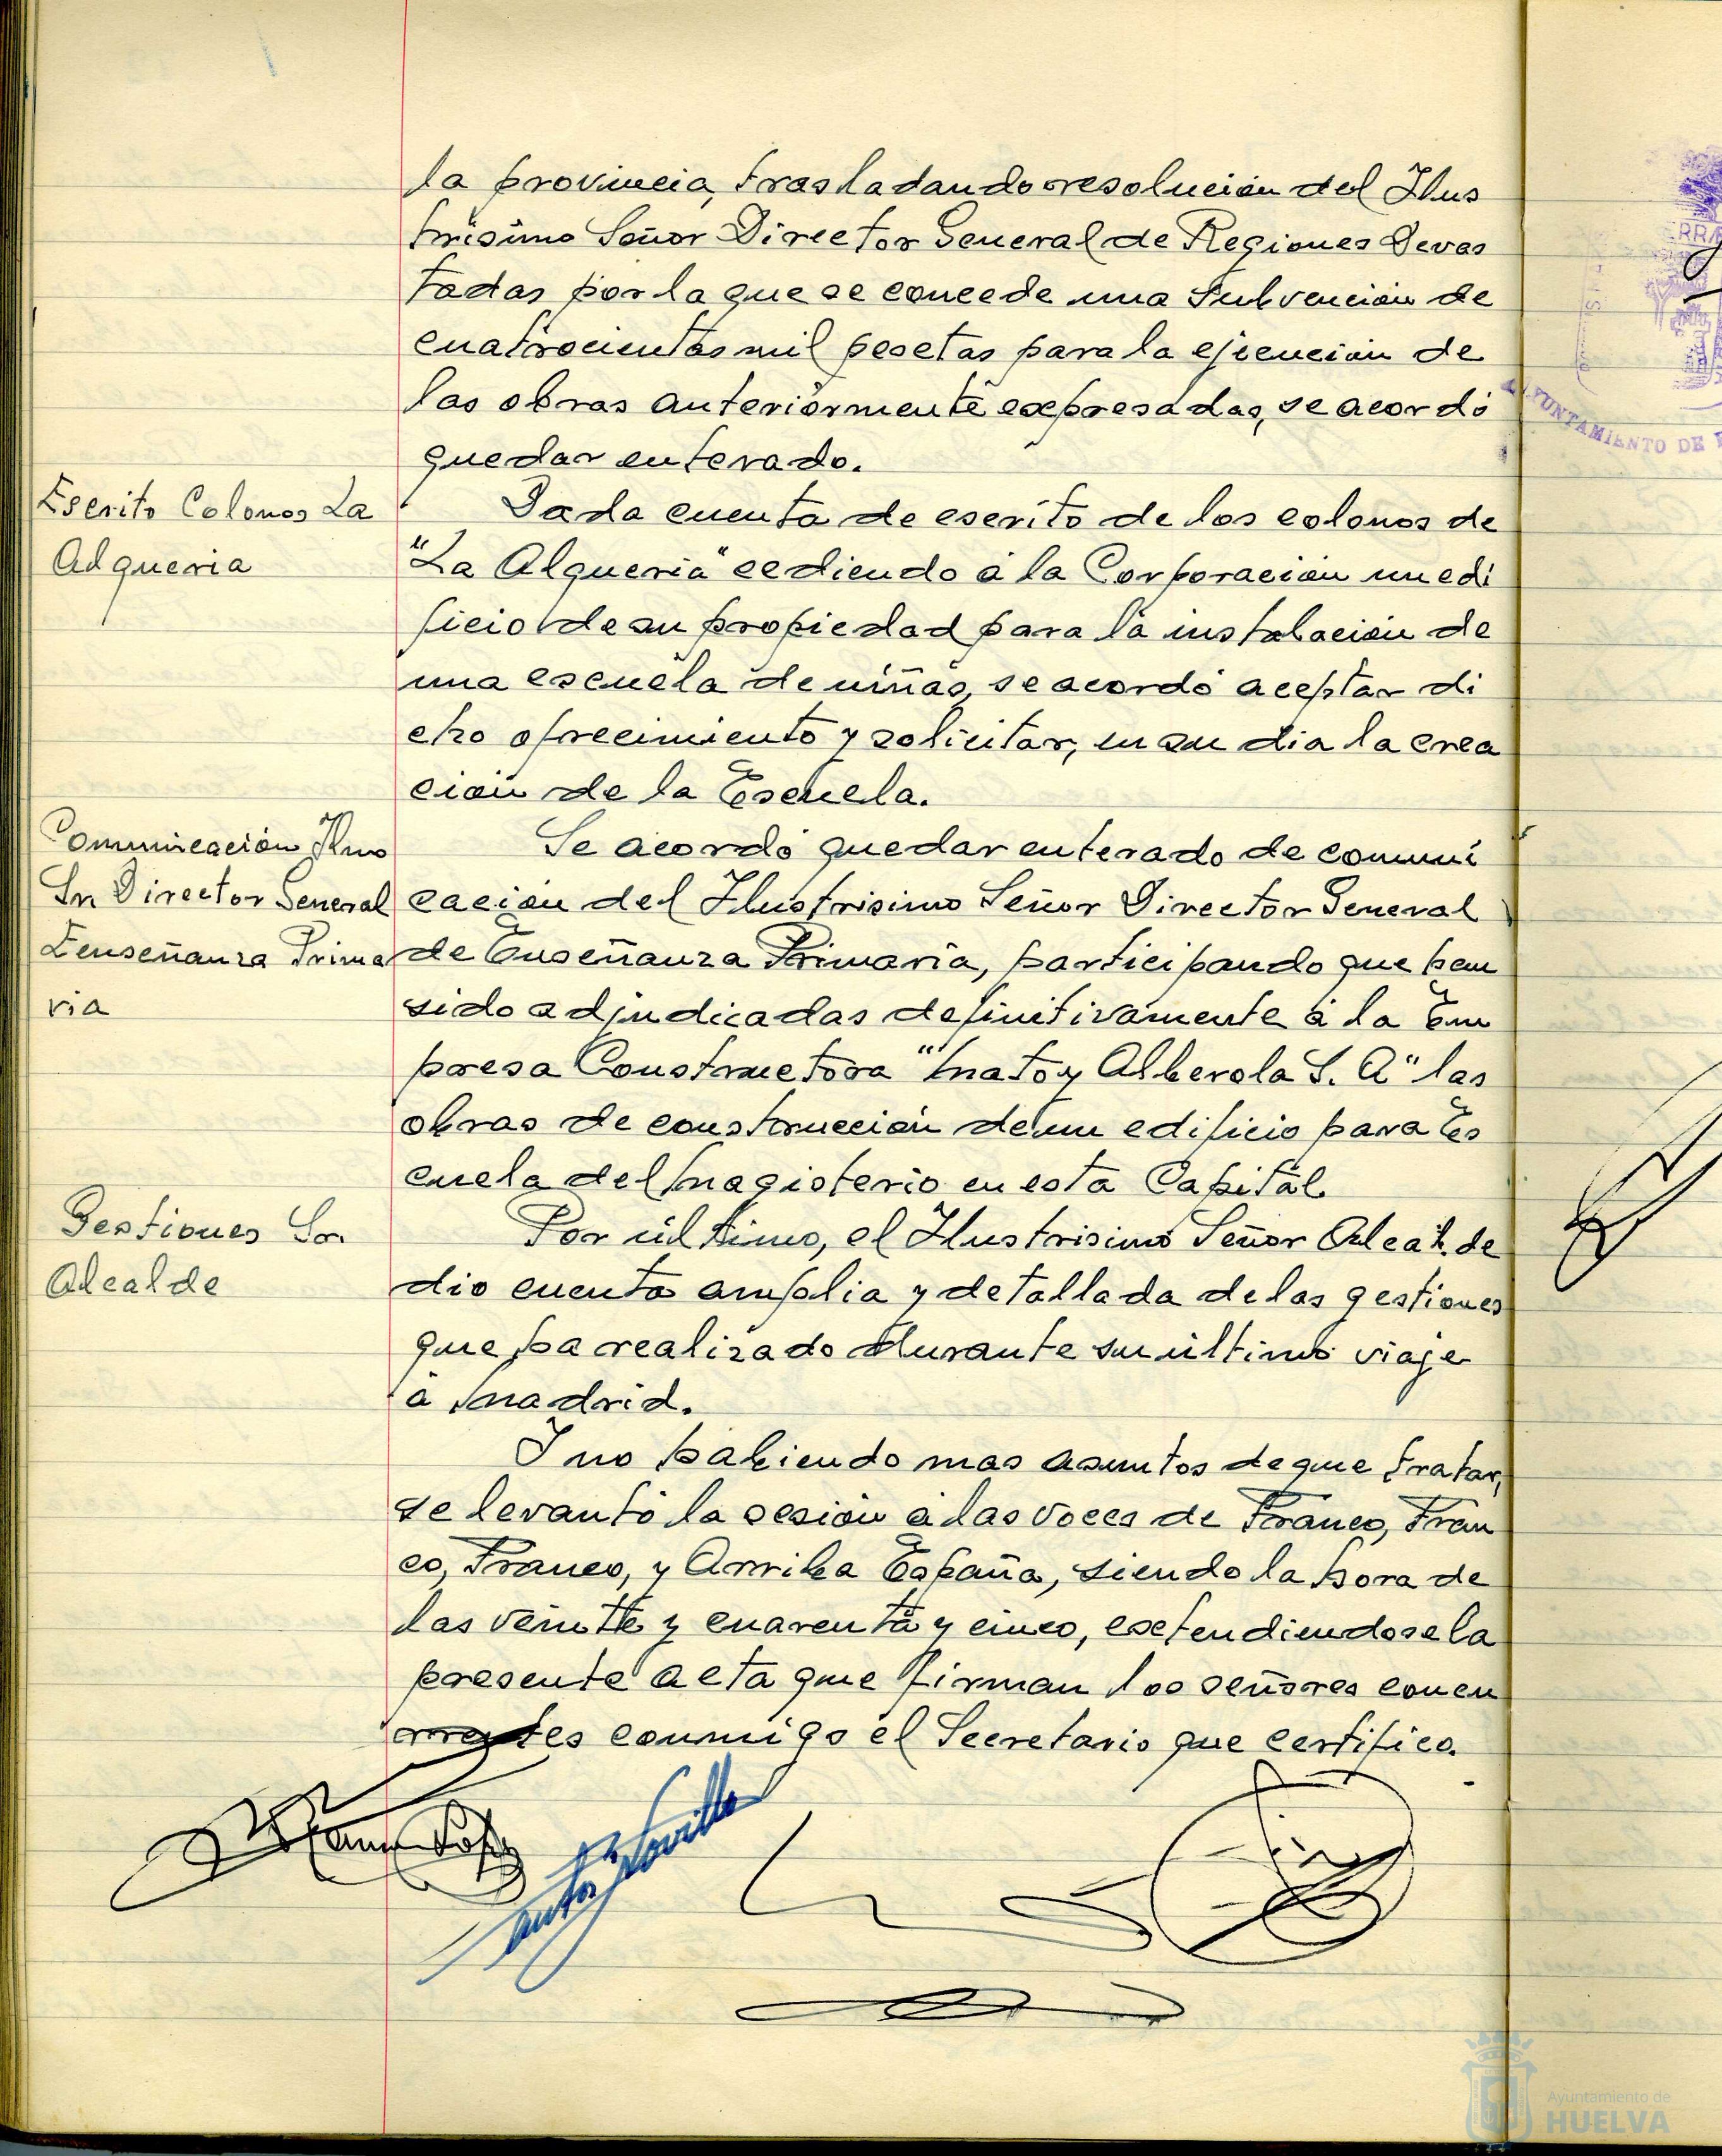 la provincia, trasladando resolución del Ilus
trísimo Señor Director General de Regiones Devas
tadas por la que se concede una Subvención de
cuatrocientas mil pesetas para la ejecución de
las obras anteriormente expresadas, se acordó
quedar enterado.
Escrito Colonos La
Alqueria
Dada cuenta de escrito de los colonos de
"La Alqueria" cediendo á la Corporación un edi
ficio de su propiedad para la instalación de
una escuela de niñas, se acordó aceptar di
cho ofrecimiento y solicitar, en su dia la crea
ción de la Escuela.
Comunicación Ilmo
Sr Director General
Enseñanza Prima
ria
Se acordó quedar enterado de comuni
cación del Ilustrisimo Señor Director General
de Enseñanza Primaria, participando que han
sido adjudicadas definitivamente á la Em
presa Constructora "Mato y Alberola S. A" las
obras de construcción de un edificio para Es
cuela del Magisterio en esta Capital.
Gestiones Sr.
Alcalde
Por último, el Ilustrisimo Señor Alcalde
dio cuenta amplia y detallada de las gestiones
que ha realizado durante su último viaje
á Madrid.
Y no habiendo mas asuntos de que tratar,
se levantó la sesión á las voces de Franco, Fran
co, Franco, y Arriba España, siendo la hora de
las veinte y cuarenta y cinco, extendiendose la
presente acta que firman los señores concu
rrentes conmigo el Secretario que certifico.
AYUNTAMIENTO DE
Ayuntamiento de
HUELVA